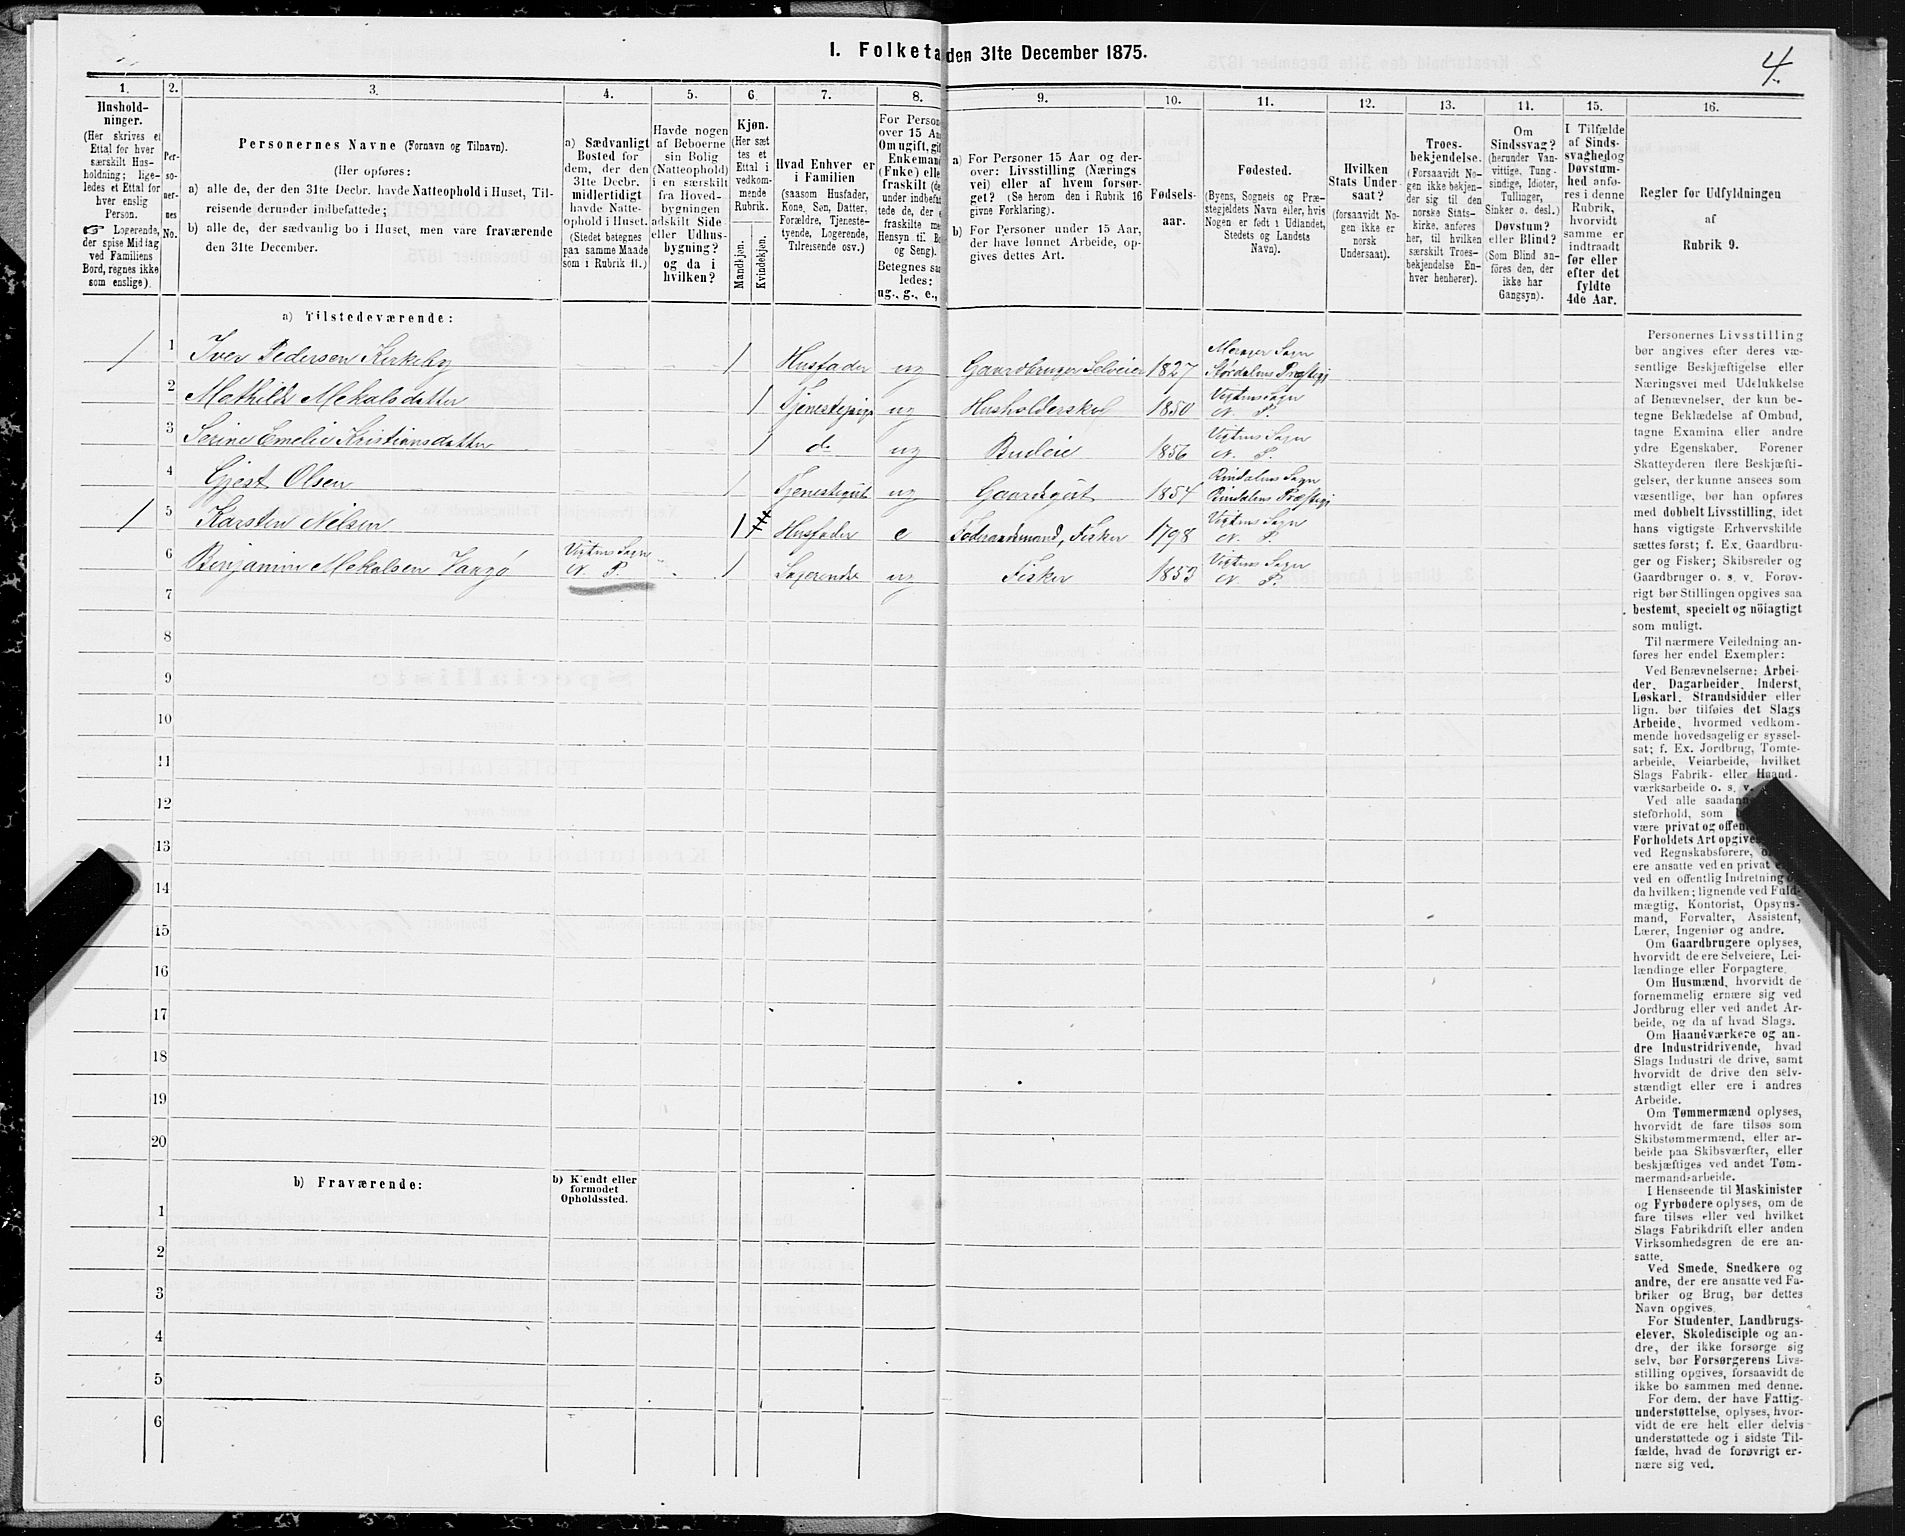 I. Folketa den 31te December 1875.
4.
1. 2. 3. 4. 5. 6. 7. 8. 9. 10. 11. 12. 13. 14. 15. 16.
Hushold-
ninger.
(Her skrives et
Ettal for hver
særskilt Hus-
holdning; lige-
ledes et Ettal for
hver enslig
Person.
☞ Logerende,
der spise Middag
ved Familiens
Bord, regnes ikke
som enslige).
Per-
so-
ner-
nes
No.
Personernes Navne (Fornavn og Tilnavn).
(Her opføres:
a) alle de, der den 31te Decbr. havde Natteophold i Huset, Til-
reisende derunder indbefattede;
b) alle de, der sædvanlig bo i Huset, men vare fraværende
den 31te December.
a) Sædvanligt
Bosted for
dem, der den
31te Decbr.
midlertidigt
havde Natte-
ophold i Huset.
(Stedet betegnes
paa samme Maade
som i Rubrik 11.)
Havde nogen
af Beboerne
sin Bolig
(Natteophold)
i en særskilt
fra Hoved-
bygningen
adskilt Side-
eller Udhus-
bygning?
og da i
hvilken?
Kjøn.
(Her sæt
tes et
Ettal i
vedkom-
mende
Rubrik.
Mandkjøn.
Kvindekjøn.
Hvad Enhver er
i Familien
(saasom Husfader,
Kone, Søn, Datter,
Forældre, Tjeneste-
tyende, Logerende,
Tilreisende osv.)
For Person
over 15 Aa
Om ugift, gif
Enkeman
(Fnke) elle
fraskilt (de
under indbefat
tede de, der e
fraskilte me
Hensyn til B
og Seng).
Betegnes saa
ledes:
ug., g., e.,
a) For Personer 15 Aar og der-
over: Livsstilling (Nærings
vei) eller af hvem forsør-
get? (Se herom den i Rubrik 16
givne Forklaring).
b) For Personer under 15 Aar,
der have lønnet Arbeide, op-
gives dettes Art.
Fødsels-
aar.
Fødested.
(Byens, Sognets og Præ-
stegjeldets Navn eller, hvis
Nogen er født i Udlandet,
Stedets og Landets
Navn).
Hvilken
Stats Under-
saat?
(forsaavidt No-
gen ikke er
norsk
Undersaat).
Troes-
bekjendelse.
(Forsaavidt No-
gen ikke bekjen-
der sig til den
norske Stats-
kirke, anføres
her, til hvilken
særskilt Troes-
bekjendelse En-
hver henhører).
Om
Sindssvag?
(herunder Van-
vittige, Tung-
sindige, Idioter,
Tullinger,
Sinker o. desl.)
Døvstum?
eller Blind?
(Som Blind an-
føres den, der
ikke har
Gangsyn).
I Tilfælde
af Sinds-
svaghed og
Døvstum-
hed anfø-
res i denne
Rubrik,
hvorvidt
samme er
indtraadt
før eller
efter det
fyldte
4de Aar.
Regler for Udfyldningen
af
Rubrik 9.
a) Tilstedeværende:
1 1 Iver Pedersen Kirkeby 1 Husfader ug Gaardbruger Selveier 1827 Merager Sogn Størdalens Præstegj
2 Mathilde Mekalsdatter 1 Tjenestepige ug Husholderske 1850 Vigtens Sogn N. P.
3 Serine Emelie Kristiansdatter 1 do ug Budeie 1856 Vigtens Sogn N. P.
4 Gjest Olsen 1 Tjenestegut ug Gaardsgut 1854 Rindalens Sogn Rindalens Præstegj
1 5 Karsten Nilsen 1 Husfader e Føderaadsmand, Fisker 1798 Vigtens Sogn N. P.
6 Benjamin Mekalsen Vangø Vigtens Sogn N. P. 1 Logerende ug Fisker 1853 Vigtens Sogn N. P.
7
8
9
10
11
12
13
14
15
16
17
18
19
20
b) Fraværende:
b) Kjendt eller
formodet
Opholdssted.
1
2
3
4
5
6
Personernes Livsstilling
bør angives efter deres væ-
sentlige Beskjæftigelse eller
Næringsvei med Udelukkelse
af Benævnelser, der kun be-
tegne Beklædelse af Ombud,
tagne Examina eller andre
ydre Egenskaber. Forener
Skatteyderen flere Beskjæfti-
gelser, der kunne ansees som
væsentlige, bør han opføres
med dobbelt Livsstilling, idet
hans vigtigste Erhvervskilde
sættes først; f. Ex. Gaardbru-
ger og Fisker; Skibsreder og
Gaardbruger o. s. v. Forøv-
rigt bør Stillingen opgives saa
bestemt, specielt og nöiagtigt
som muligt.
Til nærmere Veiledning an-
føres her endel Exempler:
Ved Benævnelserne: Arbei-
der, Dagarbeider, Inderst,
Løskarl, Strandsidder eller
lign. bør tilføies det Slags
Arbeide, hvormed vedkom-
mende hovedsagelig er syssel-
sat; f. Ex. Jordbrug, Tomte-
arbeide, Veiarbeide, hvilket
Slags Fabrik- eller Haand-
værksarbeide o. s. v.
Ved alle saadann
steforhold, som
være privat og offen
Forholdets Art opgives,
ved Regnskabsførere,
ere ansatte ved en privat
ved en offentlig Indretning
da hvilken; lignende ved Fuld-
mægtig, Kontorist, Opsyns-
mand, Forvalter, Assistent,
Lærer, Ingeniør og andre.
Om Gaardbrugere oplyses,
hvorvidt de ere Selveiere, Lei-
lændinge eller Forpagtere.
Om Husmænd, hvorvidt de
fornemmelig ernære sig ved
Jordbrug eller ved andet Ar-
beide, og da af hvad Slags.
Om Haandværkere og an-
dre Industridrivende, hvad
Slags Industri de drive, samt
hvorvidt de drive den selv-
stændigt eller ere i andres
Arbeide.
Om Tømmermænd oplyses,
hvorvidt de fare tilsøs som
Skibstømmermænd, eller ar-
beide paa Skibsværfter, eller
beskjæftiges ved andet Tøm-
mermandsarbeide.
I Henseende til Maskinister
og Fyrbødere oplyses, om de
fare tilsøs eller ved hvilket
Slags Fabrikdrift eller anden
Virksomhedsgren de ere an-
satte.
Ved Smede, Snedkere og
andre, der ere ansatte ved Fa-
briker og Brug, bør dettes
Navn opgives.
For Studenter, Landbrugs-
elever, Skoledisciple og an-
dre, der ikke forsørge sig
selv, bør Forsørgerens Livs-
stilling opgives, forsaavidt de
ikke bo sammen med denne.
For dem, der have Fattig-
understøttelse, oplyses, hvor-
vidt de ere helt eller delvis
understøttede og i sidste Til-
fælde, hvad de forøvrigt er-
nære sig ved.